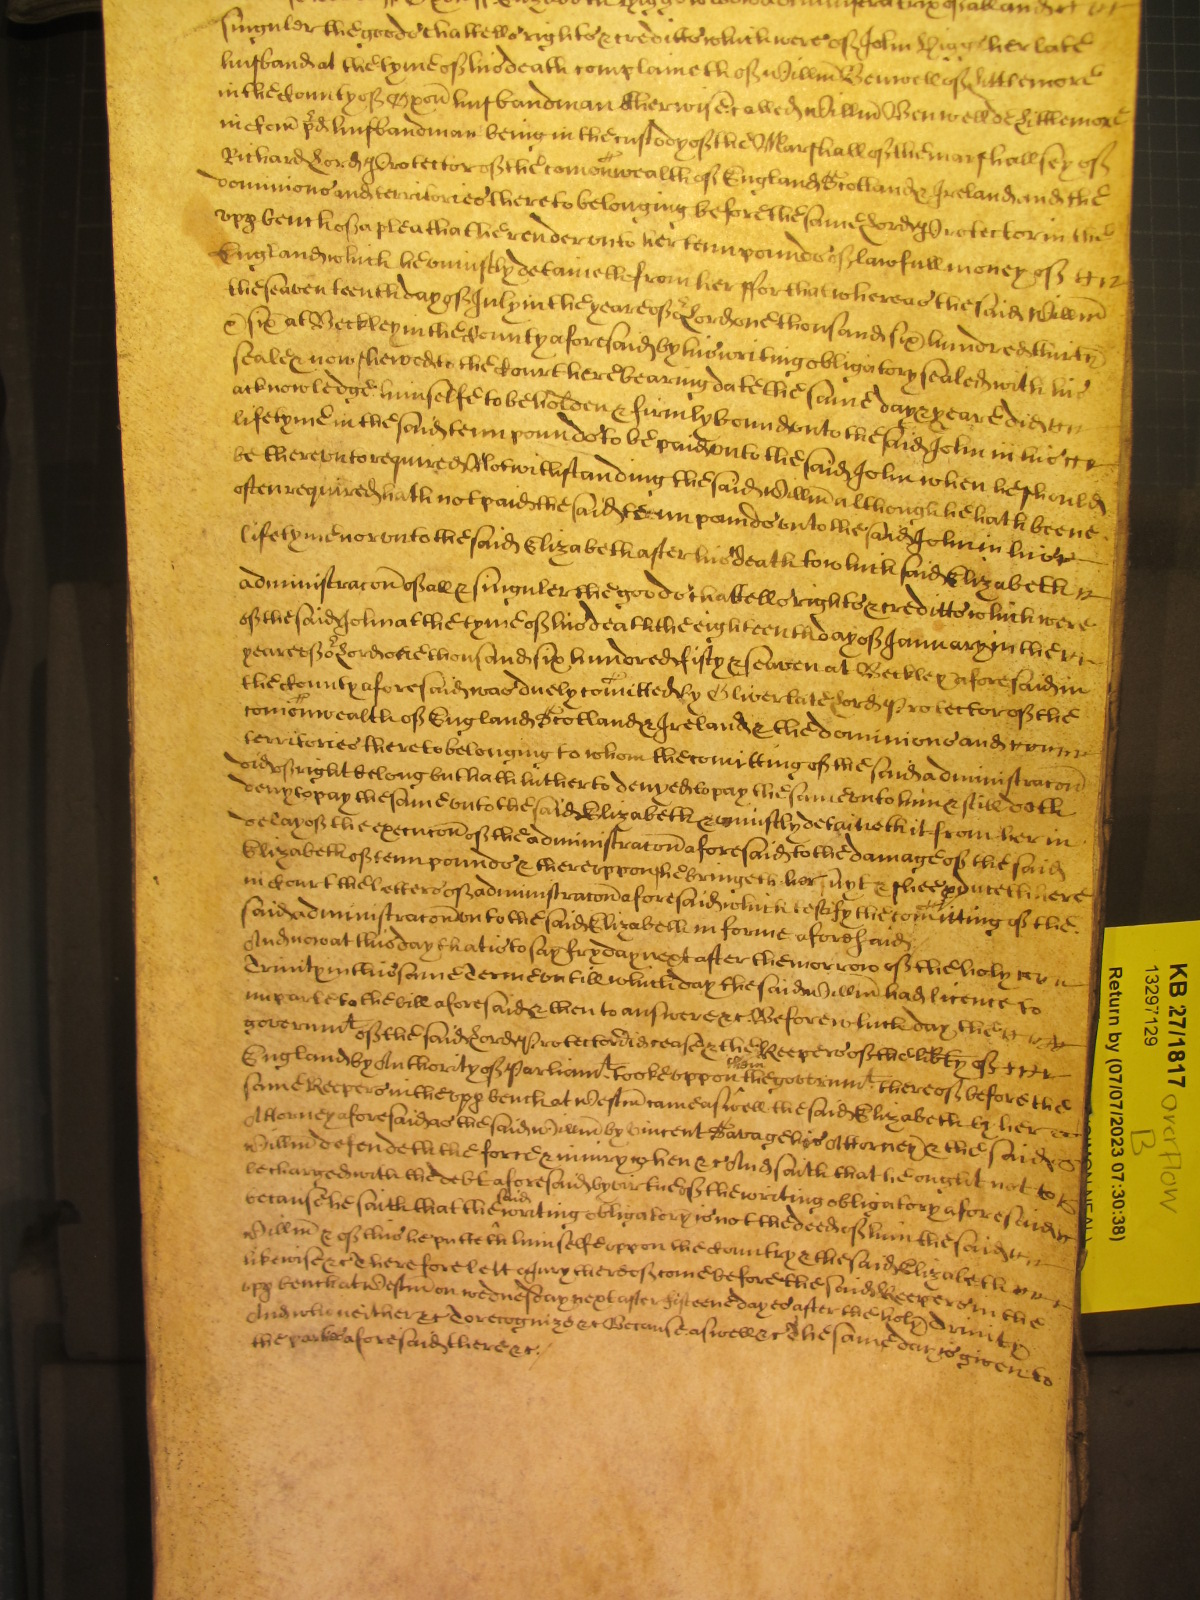 singuler the goods chattells rights & creditts which were of John Higgs her late
husband at the tyme of his death complaineth of Willm Benwell of Littlemore
in the County of Oxon husbandman otherwise called Willm Benwell de Littlemore
in Com p'd husbandman being in the custody of the Marshall of the marshallsey of
Richard Lord Protector of the comonwealth of England Scotland & Ireland and the
dominions and territories thereto belonging before the same Lord Protector in the
upp bench of a plea that he render unto her tenn pounds of lawfull money of
England which he uniustly detaineth from her ffor that whereas the said Willm
the seaventeenth day of July in the yeare of or Lord one thousand six hundred thirty
& six at Beckley in the County aforesaid by his writing obligatory sealed with his
seale & now shewed to the Court here bearing date the same day & yeare did
acknowledge himselfe to be holden & firmly bound unto the said John in his
lifetyme in the said tenn pounds to be paid unto the said John when he should
be thereunto required Notwithstanding the said Willm although he hath beene
often required hath not paid the said tenn pounds unto the said John in his
lifetyme nor unto the said Elizabeth after his death to which said Elizabeth
administracon of all & singuler the goods chattells rights & creditts which were
of the said John at the tyme of his death the eighteenth day of January in the
yeare of or Lord one thousand six hundred fifty & seaven at Beckley aforesaid in
the County aforesaid was duely comitted by Oliver late Lord Protector of the
comonwealth of England Scotland & Ireland & the dominions and
territories thereto belonging to whom the comitting of the said administracon
did of right belong but hath hitherto denyed to pay the same unto him & still doth
deny to pay the same unto the said Elizabeth & uniustly detaineth it from her in
delay of the execucon of the administracon aforesaid to the damage of the said
Elizabeth of tenn pounds & thereuppon she bringeth her suyt & shee pduceth here
in Court the letters of administracon aforesaid which testify the comitting of the
said administracon unto the said Elizabeth in forme aforesaid
And now at this day that is to say fryday next after the morrow of the holy
Trinity in this same Terme untill which day the said Willm had licence to
imparle to the bill aforesaid & then to answere &c Before which day the
governmt of the said Lord Protector did cease & the Keepers of the libty of
England by Authority of Parliamt tooke uppon them the governmt thereof before the
same Keepers in the upp bench at Westm came aswell the said Elizabeth by her
Attorney aforesaid as the said Willm by Vincent Savage his Attorney & the said
Willm defendeth the force & iniury when &c And saith that he ought not to
be charged with the debt aforesaid by virtue of the writing obligatory aforesaid
because he saith that the said writing obligatory is not the deed of him the said
Willm & of this he putteth himselfe uppon the Country & the said Elizabeth
likewise &c Therefore lett a Jury thereof come before the said Keepers in the
upp bench at Westm on wednesday next after fifteene dayes after the holy Trinity
And who neither &c To recognize &c Because aswell &c The same day is given to
the parties aforesaid there &c
KB 27/1817 overflow
13297129
B
Return by (07/07/2023 07:30:38)